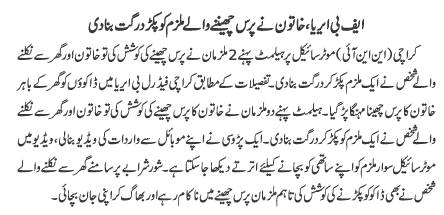 ایف بی ایریا، خاتون نے پرس چھیننے والے ملزم کو پکڑ درگت بنادی
کراچی (این این آئی) موٹر سائیکل پر ہیلمٹ پہنے 2 ملزمان نے پرس چھیننے کی کوشش کی تو خاتون اور گھر سے نکلنے
والے شخص نے ایک ملزم پکڑ کر درگت بنادی۔ تفصیلات کے مطابق کراچی فیڈرل بی ایریا میں ڈاکوؤں کو گھر کے باہر
خاتون کا پرس چھیننا مہنگا پڑ گیا۔ ہیلمٹ پہنے دو ملزمان نے خاتون کا پرس چھیننے کی کوشش کی تو خاتون اور گھر سے نکلنے
والے شخص نے ایک ملزم کو پکڑ کر درگت بنادی۔ ایک پڑوسی نے اپنے موبائل سے واردات کی ویڈیو بنالی، ویڈیو میں
موٹر سائیکل سوار ملزم کو اپنے ساتھی کو بچانے کیلئے اترتے دیکھا جاسکتا ہے۔ شور شرابے پر سامنے گھر سے نکلنے والے
شخص نے بھی ڈاکو کو پکڑنے کی کوشش کی تاہم ملزمان پرس چھیننے میں ناکام رہے اور بھاگ کر اپنی جان بچائی۔